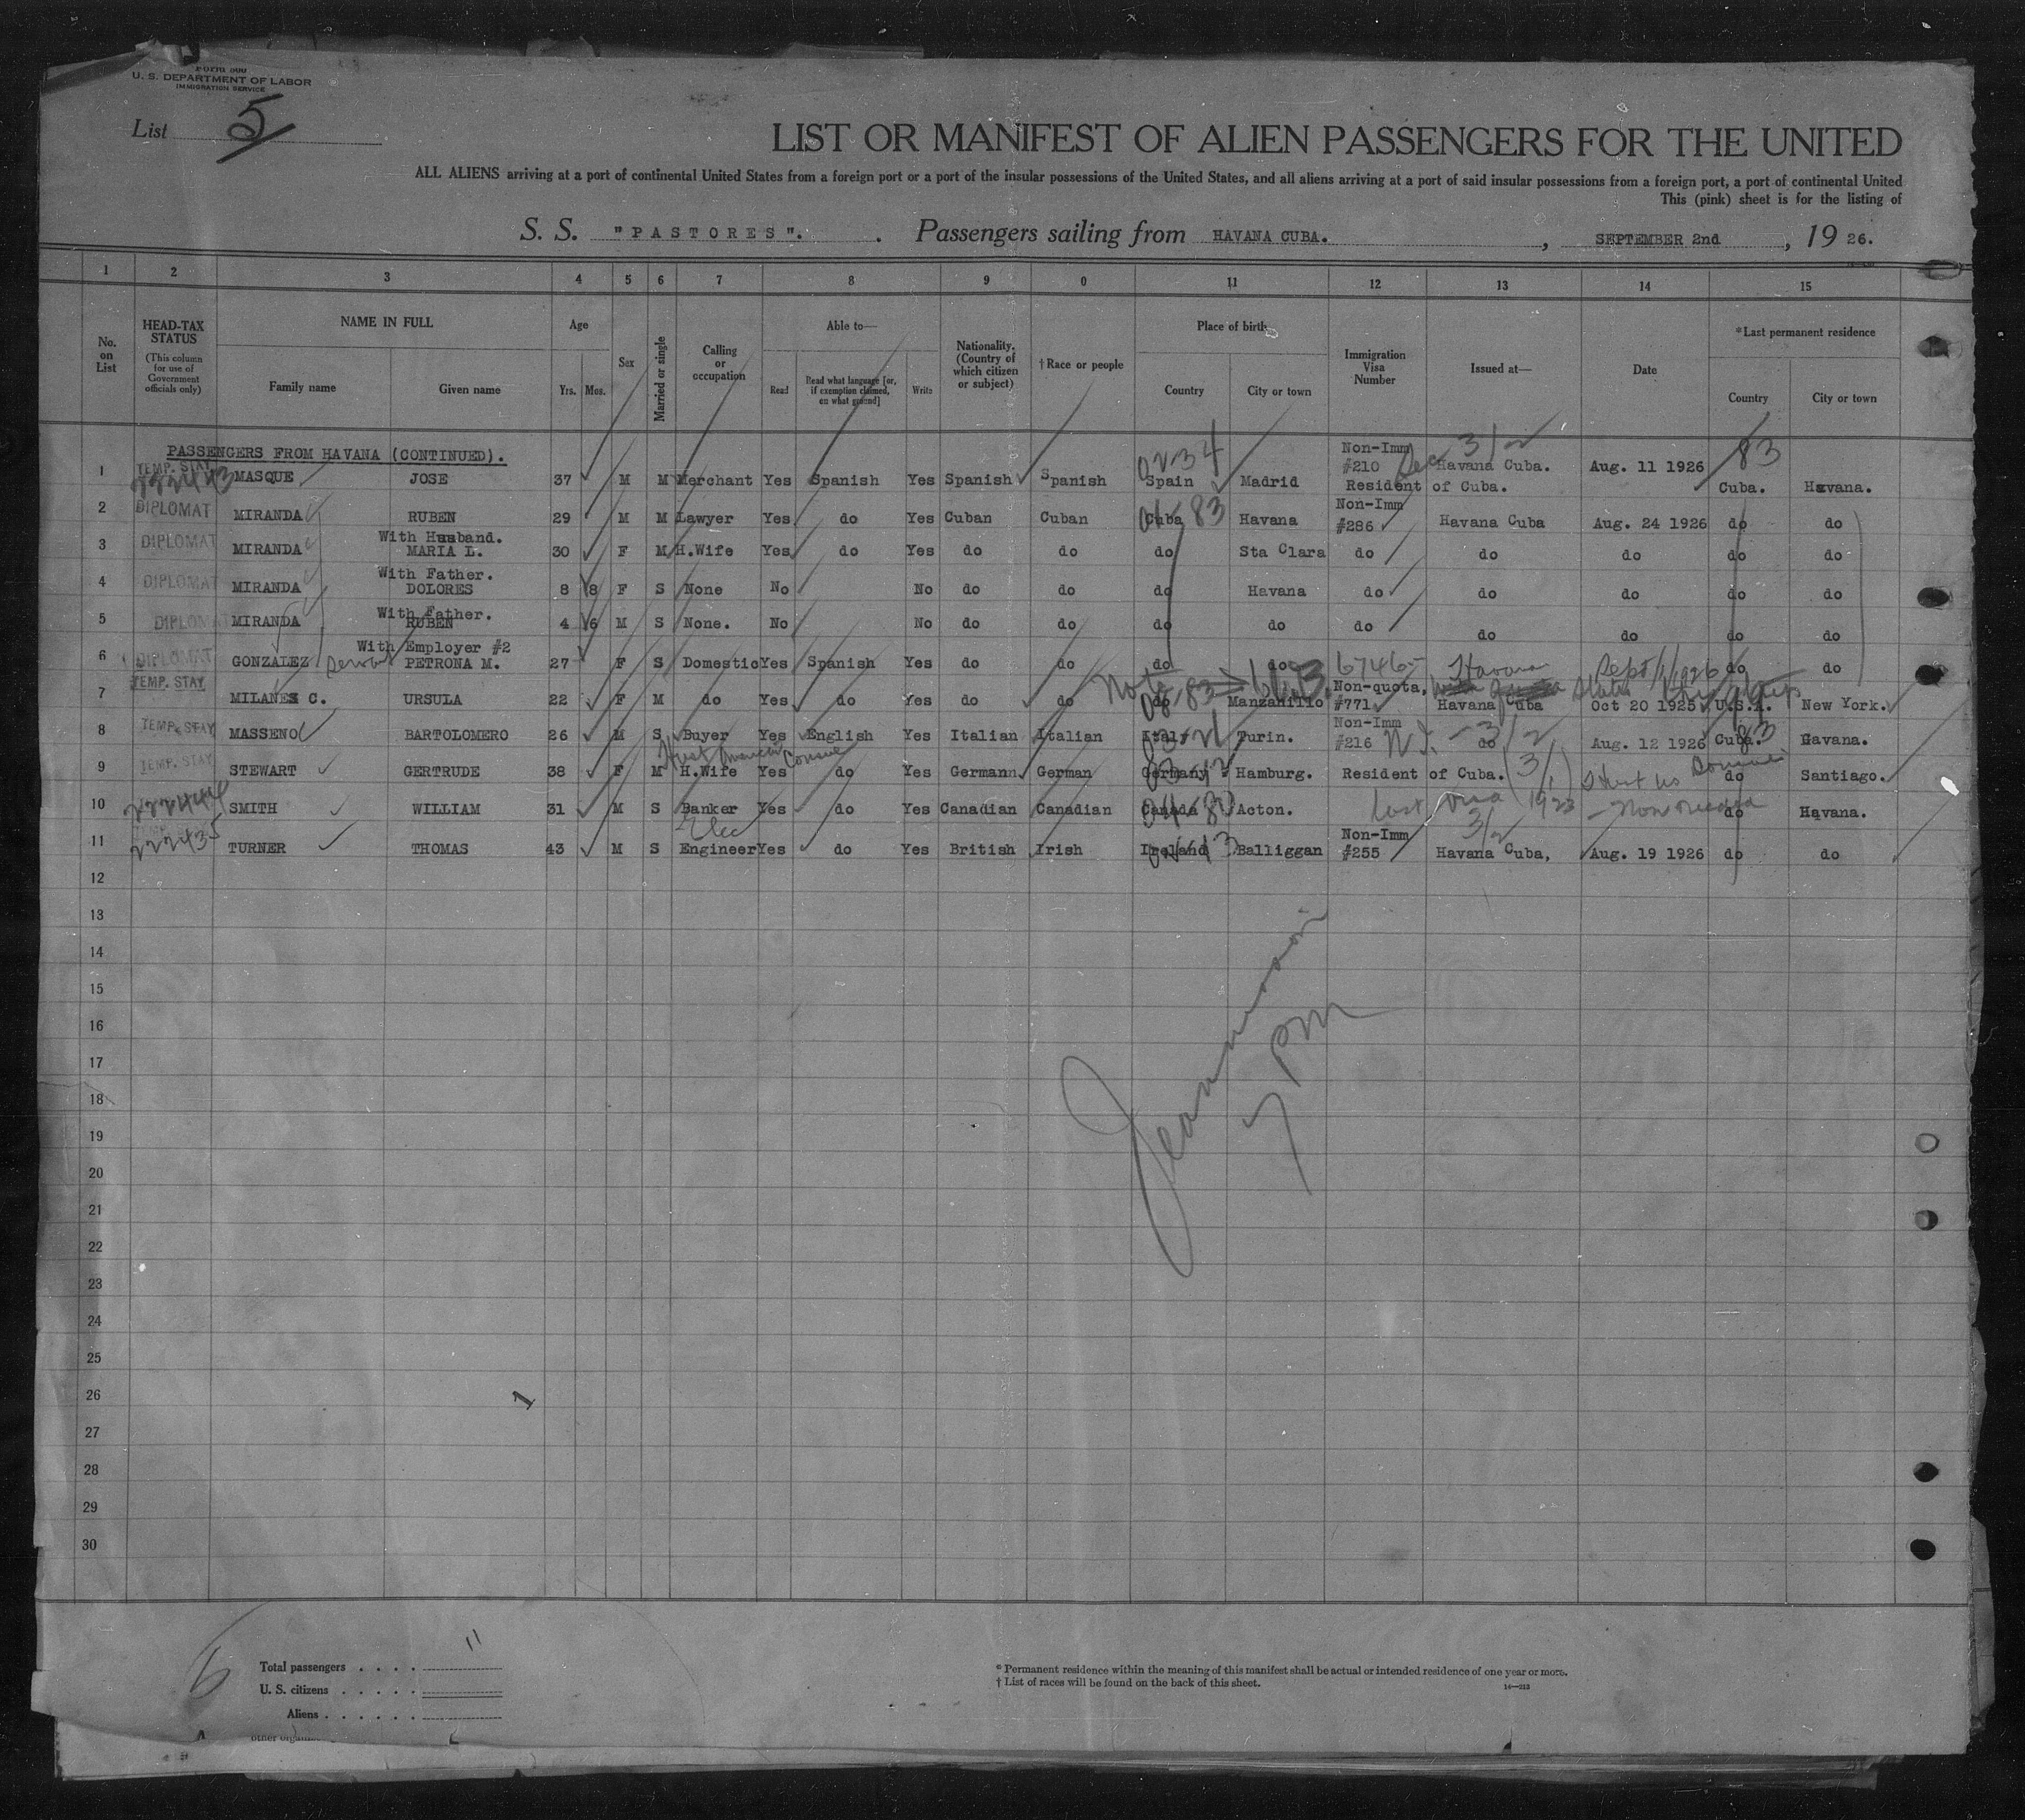 Form 500
U. S. DEPARTMENT OF LABOR
IMMIGRATION SERVICE
List 5
LIST OR MANIFEST OF ALIEN PASSENGERS FOR THE UNITED
ALL ALIENS arriving at a port of continental United States from a foreign port or a port of the insular possessions of the United States, and all aliens arriving at a port of said insular possessions from a foreign port, a port of continental United
This (pink) sheet is for the listing of
S. S. "PASTORES". Passengers sailing from HAVANA CUBA. , SEPTEMBER 2nd , 19 26.
1 2 3 4 5 6 7 8 9 0 11 12 13 14 15
No. on List HEAD-TAX STATUS (This column for use of Government officials only) NAME IN FULL Family name Given name Age Yrs. Mos. Sex Married or single Calling or occupation Able to— Read Read what language [or, if exemption claimed, on what ground] Write Nationality. (Country of which citizen or subject) † Race or people Place of birth Country City or town Immigration Visa Number Issued at— Date *Last permanent residence Country City or town
PASSENGERS FROM HAVANA (CONTINUED).
1 TEMP. STAY MASQUE JOSE 37 M M Merchant Yes Spanish Yes Spanish Spanish 0234 Spain Madrid Non-Imm #210 Resident of Cuba. 3/2 Havana Cuba. Aug. 11 1926 83 Cuba. Havana.
2 DIPLOMAT MIRANDA RUBEN 29 M M Lawyer Yes do Yes Cuban Cuban Cuba 83 Havana Non-Imm #286 Havana Cuba Aug. 24 1926 do do
3 DIPLOMAT MIRANDA With Husband. MARIA L. 30 F M H.Wife Yes do Yes do do do Sta Clara do do do do do
4 DIPLOMAT MIRANDA With Father. DOLORES 8 8 F S None No No do do do Havana do do do do do
5 DIPLOMAT MIRANDA With Father. RUBEN 4 6 M S None. No No do do do do do do do do do
6 DIPLOMAT GONZALEZ With Employer #2 PETRONA M. 27 F S Domestic Yes Spanish Yes do do do do 6746 Havana Sept 1/1926 do do
7 TEMP. STAY MILANES C. URSULA 22 F M do Yes do Yes do do do Manzanillo Non-quota, #771 Havana Cuba Oct 20 1925 U.S.A. New York.
8 TEMP. STAY MASSENO BARTOLOMERO 26 M S Buyer Yes English Yes Italian Italian Italy Turin. Non-Imm #216 N.I. - 3/2 do Aug. 12 1926 Cuba. 83 Havana.
9 TEMP. STAY STEWART GERTRUDE 38 F M H.Wife Yes do Yes Germann German Germany Hamburg. Resident of Cuba. (3/1) do Santiago.
10 SMITH WILLIAM 31 M S Banker Yes do Yes Canadian Canadian Canada Acton. 1923 do Havana.
11 222435 TURNER THOMAS 43 M S Elec Engineer Yes do Yes British Irish Ireland Balliggan Non-Imm #255 3/2 Havana Cuba, Aug. 19 1926 do do
12
13
14
15
16
17
18
19
20
21
22
23
24
25
26
27
28
29
30
7 PM
1
6
Total passengers . . . . 11
U. S. citizens . . . . .
Aliens . . . . . .
* Permanent residence within the meaning of this manifest shall be actual or intended residence of one year or more.
† List of races will be found on the back of this sheet.
14—213